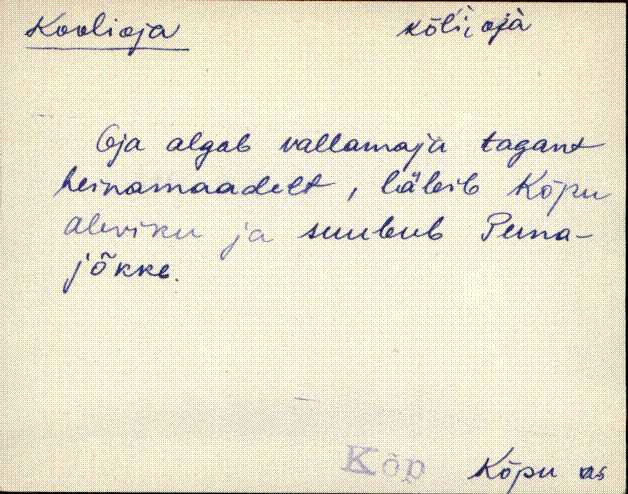 Koolioja kõli, ojà
Oja algab vallamaja tagant
heinamaadelt, läbib Kõpu
aleviku ja suubub Peina-
jõkke.
Kõp Kõpu as